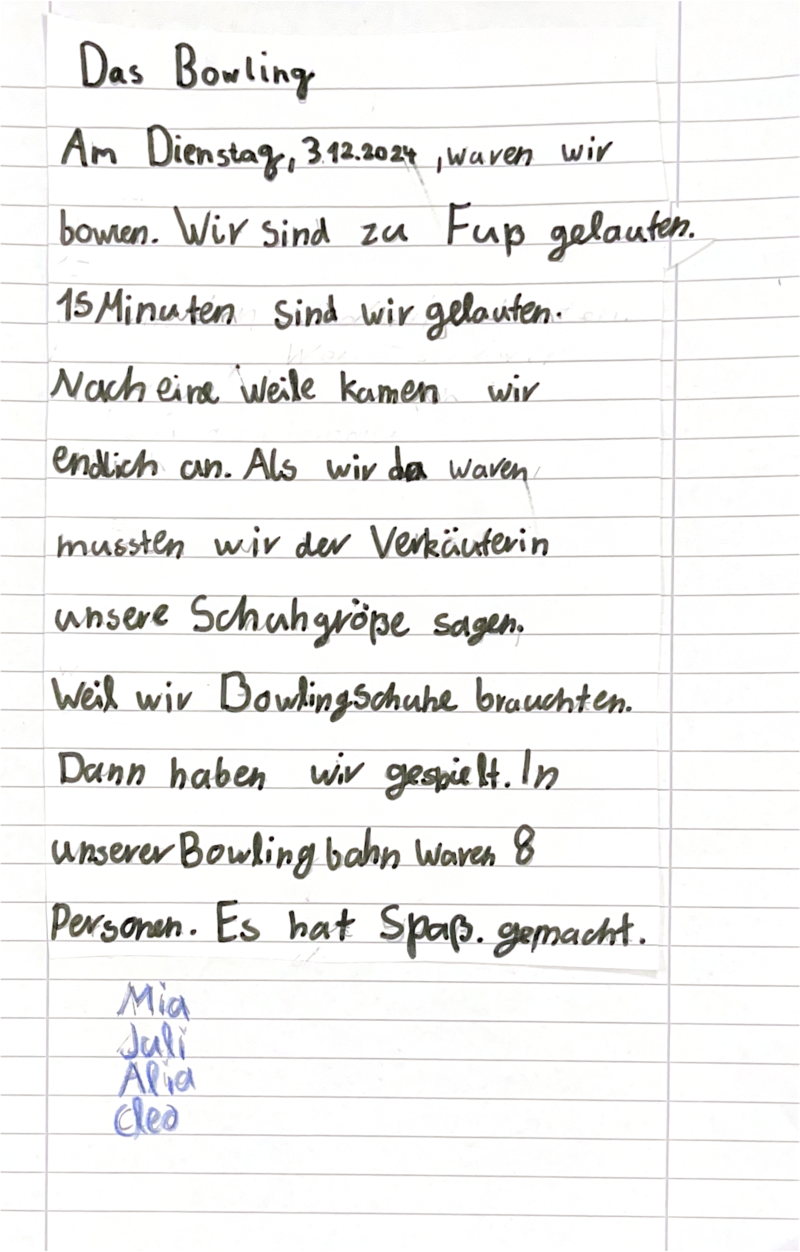 Das Bowling
Am Dienstag, 3.12.2024, waren wir
bowlen. Wir sind zu Fuß gelaufen.
15 Minuten sind wir gelaufen.
Nach eine Weile kamen wir
endlich an. Als wir da waren
mussten wir der Verkäuferin
unsere Schuhgröße sagen.
Weil wir Bowlingschuhe brauchten.
Dann haben wir gespielt. In
unserer Bowlingbahn waren 8
Personen. Es hat Spaß. gemacht.
Mia
Juli
Alia
Cleo